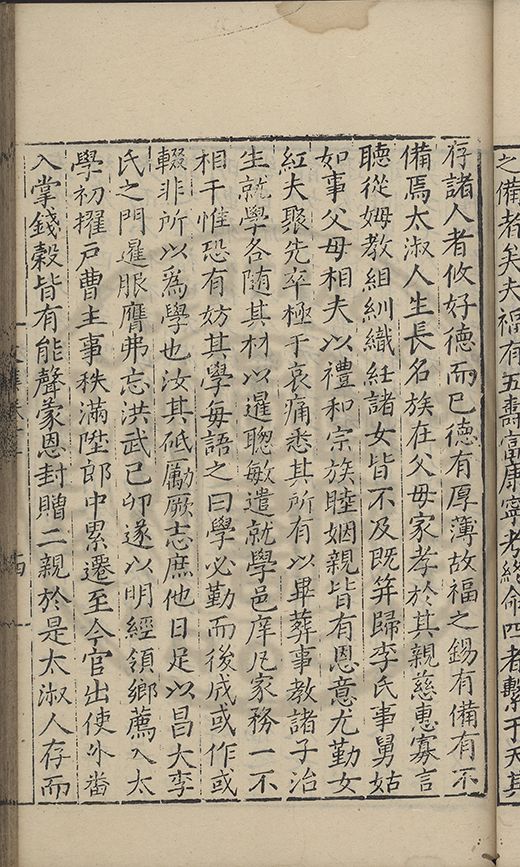 之備者矣夫福有五壽富康寧考終命四者繫于天其
存諸人者攸好德而已德有厚薄故福之錫有備有不
備焉太淑人生長名族在父母家孝於其親慈惠寡言
聽從姆教組紃織紝諸女皆不及既筓歸李氏事舅姑
如事父母相夫以禮和宗族睦姻親皆有恩意尤勤女
紅夫聚先卒極于哀痛悉其所有以畢葬事教諸子治
生就學各隨其材以暹聦敏遣就學邑庠凡家務一不
相干惟恐有妨其學每語之曰學必勤而後成或作或
輟非所以爲學也汝其砥厲厥志庶他日足以昌大李
氏之門暹服膺弗忘洪武己卯遂以明經領鄉薦入太
學初擢戶曹主事秩滿陞郎中累遷至今官出使外畨
入掌錢榖皆有能聲蒙恩封贈二親於是太淑人存而